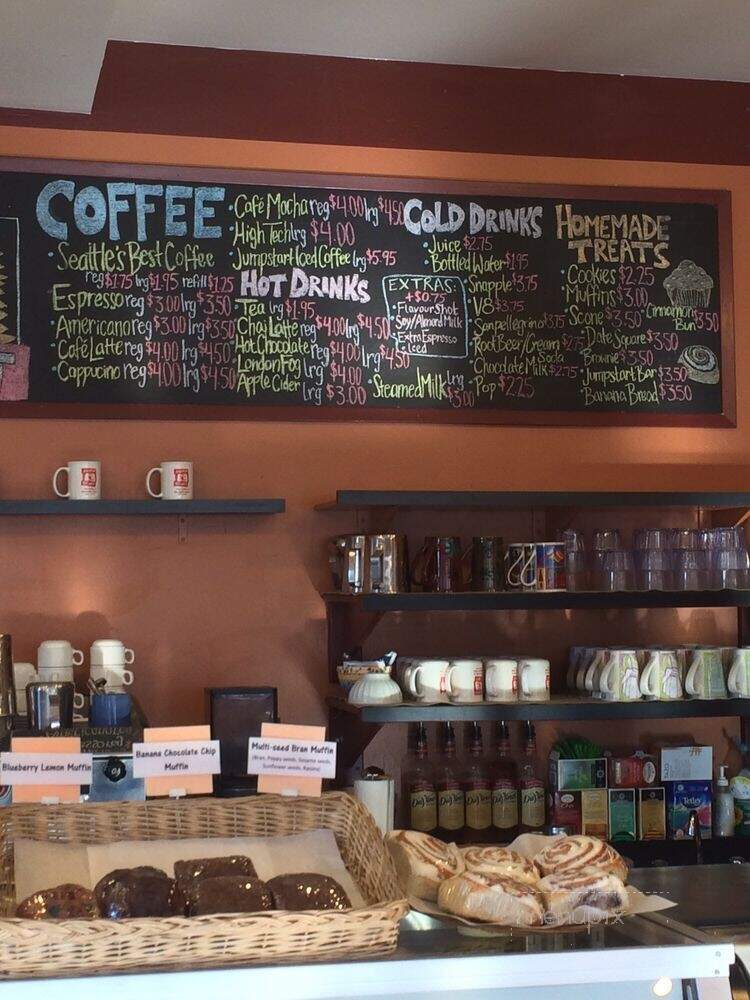 COFFEE
• Seattle's Best Coffee
reg $1.75 lrg $1.95 refill $1.25
• Espresso reg $3.00 lrg $3.50
• Americano reg $3.00 lrg $3.50
• Café Latte reg $4.00 lrg $4.50
• Cappucino reg $4.00 lrg $4.50
• Café Mocha reg $4.00 lrg $4.50
• High Tech lrg $4.00
• Jumpstart Iced Coffee lrg $5.95
HOT DRINKS
• Tea lrg $1.95
• Chai Latte reg $4.00 lrg $4.50
• Hot Chocolate reg $4.00 lrg $4.50
• London Fog lrg $4.00
• Apple Cider lrg $3.00
• Steamed Milk lrg $3.00
EXTRAS:
+$0.75
• Flavour Shot
• Soy/Almond Milk
• Extra Espresso
• Iced
COLD DRINKS
• Juice $2.75
• Bottled Water $1.95
• Snapple $3.75
• V8 $3.75
• Sanpellegrino $3.75
• Root Beer/Cream Soda $2.75
• Chocolate Milk $2.75
• Pop $2.25
HOMEMADE
TREATS
• Cookies $2.25
• Muffins $3.00
• Scone $3.50
• Cinnamon Bun $3.50
• Date Square $3.50
• Brownie $3.50
• Jumpstart Bar $3.50
• Banana Bread $3.50
Blueberry Lemon Muffin
Banana Chocolate Chip
Muffin
Multi-seed Bran Muffin
(Bran, Poppy seeds, Sesame seeds,
Sunflower seeds, Raisins)
DaVinci
DaVinci
DaVinci
DaVinci
DaVinci
Tetley
menupix